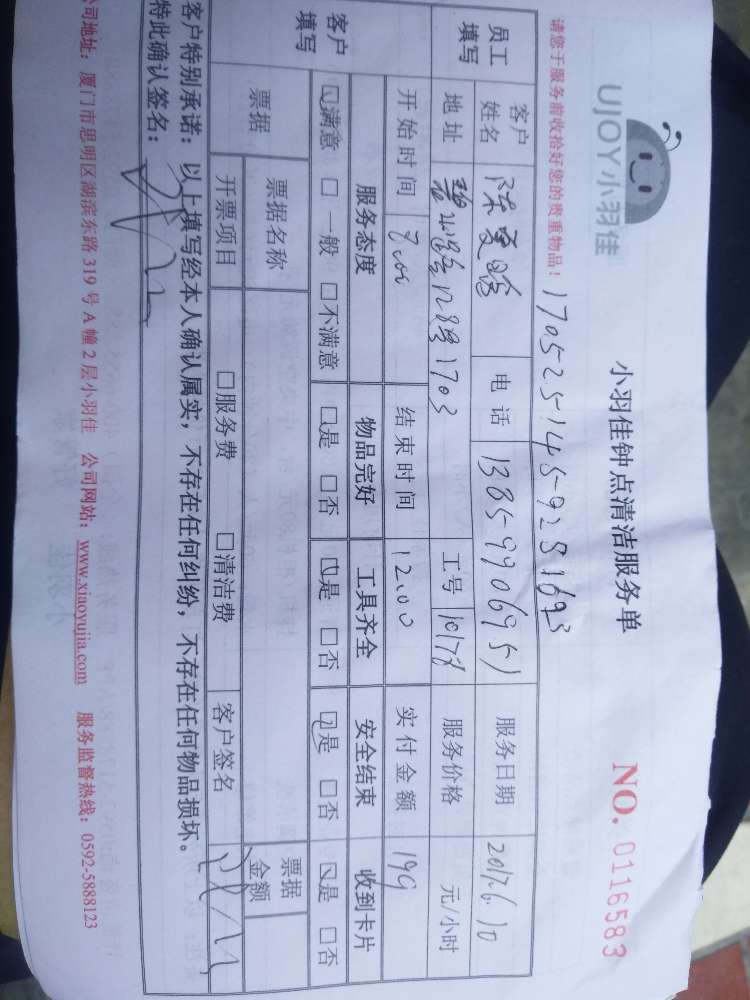 UJOY小羽佳
小羽佳钟点清洁服务单
NO. 0116583
请您于服务前收拾好您的贵重物品！ 1705251459281693
员工填写 客户姓名 陈 电话 服务日期 2017.6.10
地址 1703 工号 服务价格 元/小时
客户填写 开始时间 8:00 结束时间 12:00 实付金额 199
服务态度 物品完好 工具齐全 安全结束 收到卡片
☑满意 □一般 □不满意 ☑是 □否 ☑是 □否 ☑是 □否 ☑是 □否
票据 票据名称 票据金额
开票项目 □服务费 □清洁费 客户签名
客户特别承诺：以上填写经本人确认属实，不存在任何纠纷，不存在任何物品损坏。
特此确认签名：
公司地址：厦门市思明区湖滨东路 319 号 A 幢 2 层小羽佳 公司网站：www.xiaoyujia.com 服务监督热线：0592-5888123